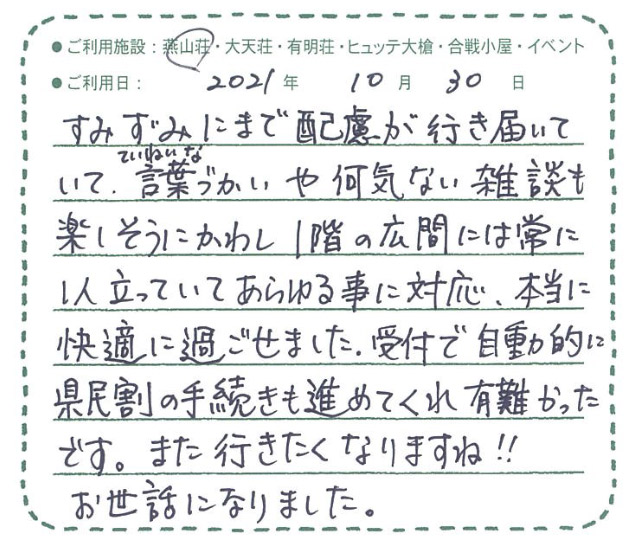 ●ご利用施設：燕山荘・大天荘・有明荘・ヒュッテ大槍・合戦小屋・イベント
●ご利用日： 2021年 10月 30日
すみずみにまで配慮が行き届いて
ていねいな
いて、言葉づかいや何気ない雑談も
楽しそうにかわし1階の広間には常に
1人立っていてあらゆる事に対応、本当に
快適に過ごせました。受付で自動的に
県民割の手続きも進めてくれ有難かった
です。また行きたくなりますね!!
お世話になりました。